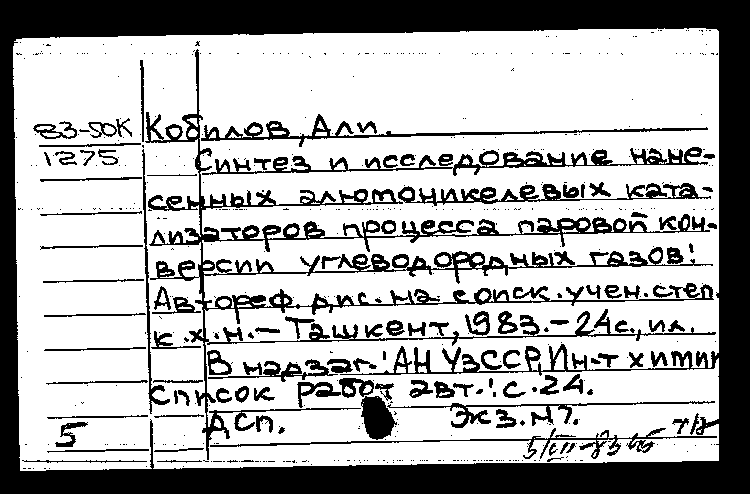 83-50К Кобилов, Али.
1275 Синтез и исследование нане-
сенных алюмоникелевых ката-
лизаторов процесса паровой кон-
версии углеводородных газов:
Автореф. дис. на соиск. учен. степ.
к.х.н. - Ташкент, 1983. - 24с., ил.
В надзаг.: АН УзССР, Ин-т химии
Список работ авт.: с. 24.
5 ДСП. Экз. №7.
5/III-83